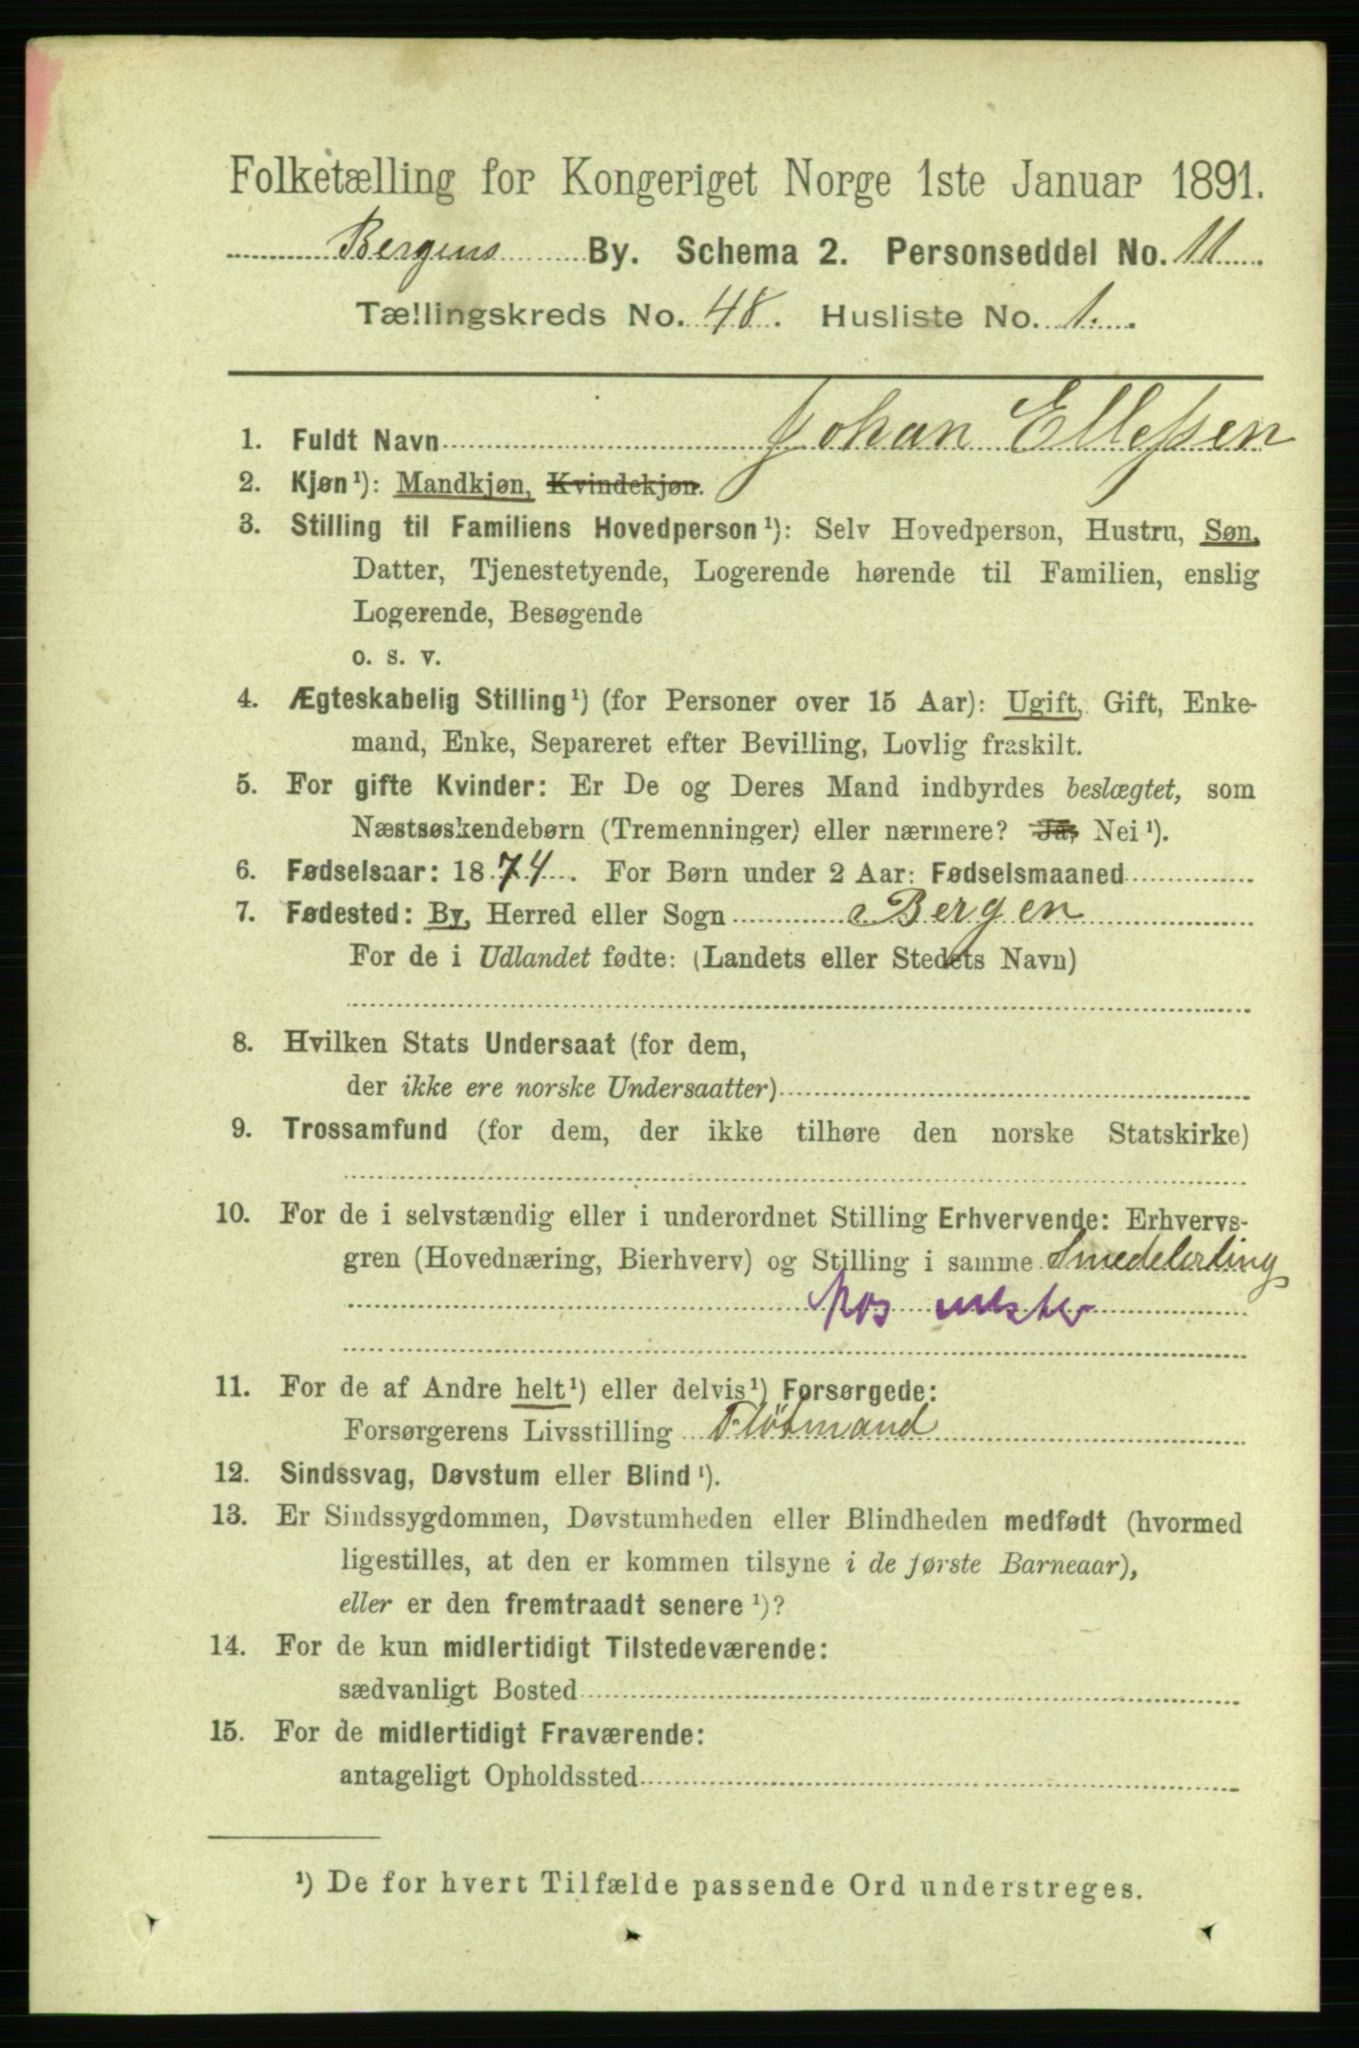 Folketælling for Kongeriget Norge 1ste Januar 1891.
Bergens By. Schema 2. Personseddel No. 11
Tællingskreds No. 48. Husliste No. 1.
1. Fuldt Navn Johan Ellessen
2. Kjøn¹): Mandkjøn, Kvindekjøn.
3. Stilling til Familiens Hovedperson¹): Selv Hovedperson, Hustru, Søn,
Datter, Tjenestetyende, Logerende hørende til Familien, enslig
Logerende, Besøgende
o. s. v.
4. Ægteskabelig Stilling¹) (for Personer over 15 Aar): Ugift, Gift, Enke-
mand, Enke, Separeret efter Bevilling, Lovlig fraskilt.
5. For gifte Kvinder: Er De og Deres Mand indbyrdes beslægtet, som
Næstsøskendebørn (Tremenninger) eller nærmere? Ja, Nei¹).
6. Fødselsaar: 1874. For Børn under 2 Aar: Fødselsmaaned
7. Fødested: By, Herred eller Sogn Bergen
For de i Udlandet fødte: (Landets eller Stedets Navn)
8. Hvilken Stats Undersaat (for dem,
der ikke ere norske Undersaatter)
9. Trossamfund (for dem, der ikke tilhøre den norske Statskirke)
10. For de i selvstændig eller i underordnet Stilling Erhvervende: Erhvervs-
gren (Hovednæring, Bierhverv) og Stilling i samme Smedelærling
hos mester
11. For de af Andre helt¹) eller delvis¹) Forsørgede:
Forsørgerens Livsstilling Flötmand
12. Sindssvag, Døvstum eller Blind¹).
13. Er Sindssygdommen, Døvstumheden eller Blindheden medfødt (hvormed
ligestilles, at den er kommen tilsyne i de første Barneaar),
eller er den fremtraadt senere¹)?
14. For de kun midlertidigt Tilstedeværende:
sædvanligt Bosted
15. For de midlertidigt Fraværende:
antageligt Opholdssted
¹) De for hvert Tilfælde passende Ord understreges.